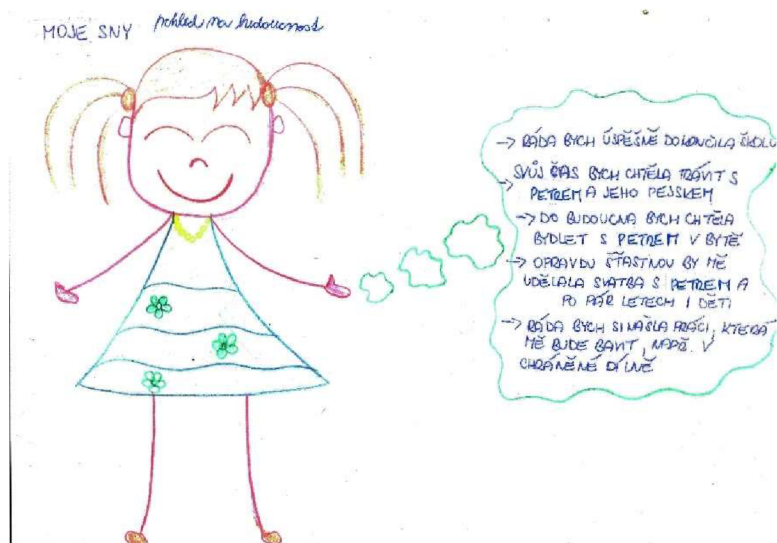 MOJE SNY pohled na budoucnost
→ RÁDA BYCH ÚSPĚŠNĚ DOKONČILA ŠKOLU
→ SVŮJ ČAS BYCH CHTĚLA TRÁVIT S
PETREM A JEHO PEJSKEM
→ DO BUDOUCNA BYCH CHTĚLA
BYDLET S PETREM V BYTĚ
→ OPRAVDU ŠŤASTNOU BY MĚ
UDĚLALA SVATBA S PETREM A
PO PÁR LETECH I DĚTI
→ RÁDA BYCH SI NAŠLA PRÁCI, KTERÁ
MĚ BUDE BAVIT, NAPŘ. V
CHRÁNĚNÉ DÍLNĚ